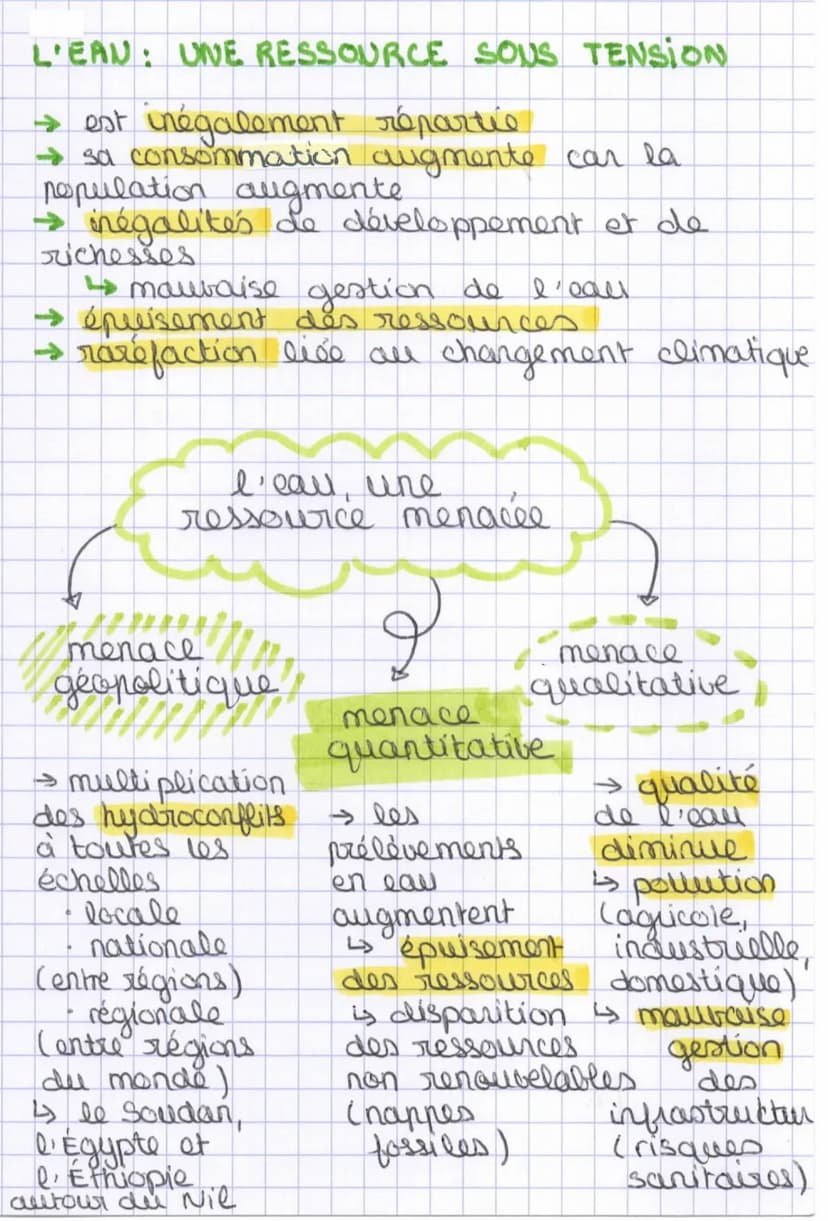 L'EAU : UNE RESSOURCE SOUS TENSION
→ est inégalement répartie
→ sa consommation augmente car la
population augmente
→ inégalités de développement et de
richesses
↳ mauvaise gestion de l'eau
→ épuisement des ressources
→ raréfaction liée au changement climatique
l'eau, une
ressource menacée
menace
géopolitique
→ multiplication
des hydroconflits
à toutes les
échelles
· locale
· nationale
(entre régions)
· régionale
(entre régions
du monde)
↳ le Soudan,
l'Égypte et
l'Éthiopie
autour du Nil
menace
quantitative
→ les
prélèvements
en eau
augmentent
↳ épuisement
des ressources
↳ disparition
des ressources
non renouvelables
(nappes
fossiles)
menace
qualitative
→ qualité
de l'eau
diminue
↳ pollution
(agricole,
industrielle,
domestique)
↳ mauvaise
gestion
des
infrastructur
(risques
sanitaires)